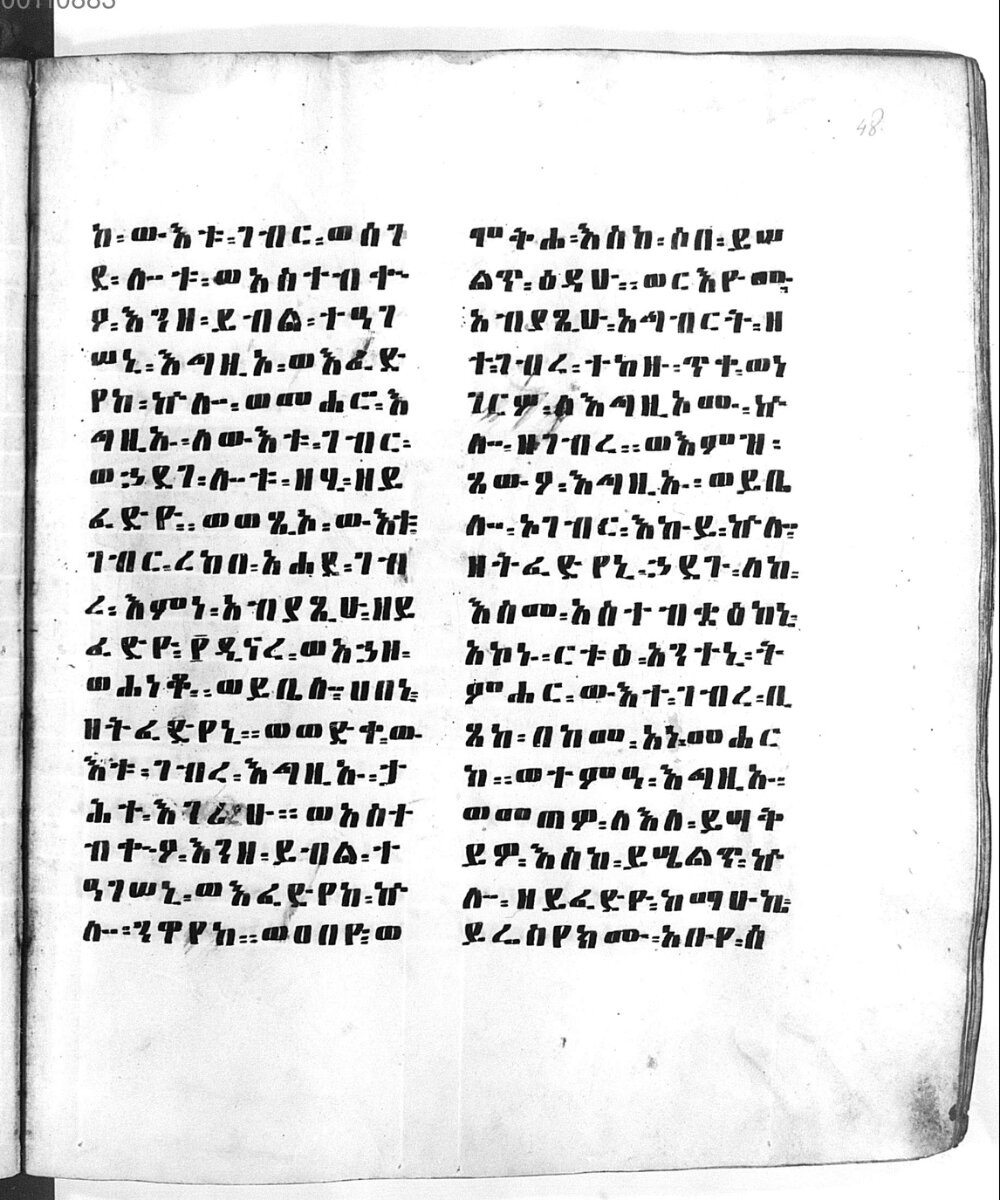 48
ከ፡ውእቱ፡ገብር፡ወሰገ
ደ፡ሎቱ፡ወአስተብቍ
ዖ፡እንዘ፡ይብል፡ተዓገ
ሠኒ፡እግዚኦ፡ወእፈድ
የከ፡ኵሎ፡ወመሐሮ፡እ
ግዚኡ፡ለውእቱ፡ገብር፡
ወኃደገ፡ሎቱ፡ዘሂ፡ዘይ
ፈድዮ፡፡ወወፂኦ፡ውእቱ፡
ገብር፡ረከበ፡አሐደ፡ገብ
ረ፡እምነ፡አብያጺሁ፡ዘይ
ፈድዮ፡፻ዲናረ፡ወአኃዘ፡
ወሐነቆ፡፡ወይቤሎ፡ሀበኒ፡
ዘትፈድየኒ፡፡ወወድቀ፡ው
እቱ፡ገብረ፡እግዚኡ፡ታ
ሕተ፡እገሪሁ፡፡ወአስተ
ብቍዖ፡እንዘ፡ይብል፡ተ
ዓገሠኒ፡ወእፈድየከ፡ኵ
ሎ፡ንዋየከ፡፡ወዐበየ፡ወ
ሞትሐ፡እስከ፡ሶበ፡ይሠ
ልጥ፡ዕዳሁ፡፡ወርእዮሙ፡
አብያጺሁ፡አግብርት፡ዘ
ተ፡ገብረ፡ተከዙ፡ጥቀ፡ወነ
ገርዎ፡ለእግዚኦሙ፡ኵ
ሎ፡ዘገብረ፡፡ወእምዝ፡
ጼውዖ፡እግዚኡ፡ወይቤ
ሎ፡ኦገብር፡እኩይ፡ኵሎ፡
ዘትፈድየኒ፡ኃደጉ፡ለከ፡
እስመ፡አስተብቋዕከኒ፡
አኮኑ፡ርቱዕ፡አንተኒ፡ት
ምሐር፡ውእተ፡ገብረ፡ቢ
ጸከ፡በከመ፡አነ፡መሐር
ኩከ፡፡ወተምዓ፡እግዚኡ፡
ወመጠዎ፡ለእለ፡ይሣት
ይዎ፡እስከ፡ይሤልጥ፡ኵ
ሎ፡ዘይፈድዮ፡ከማሁኬ፡
ይሬስየክሙ፡አቡየ፡ሰ